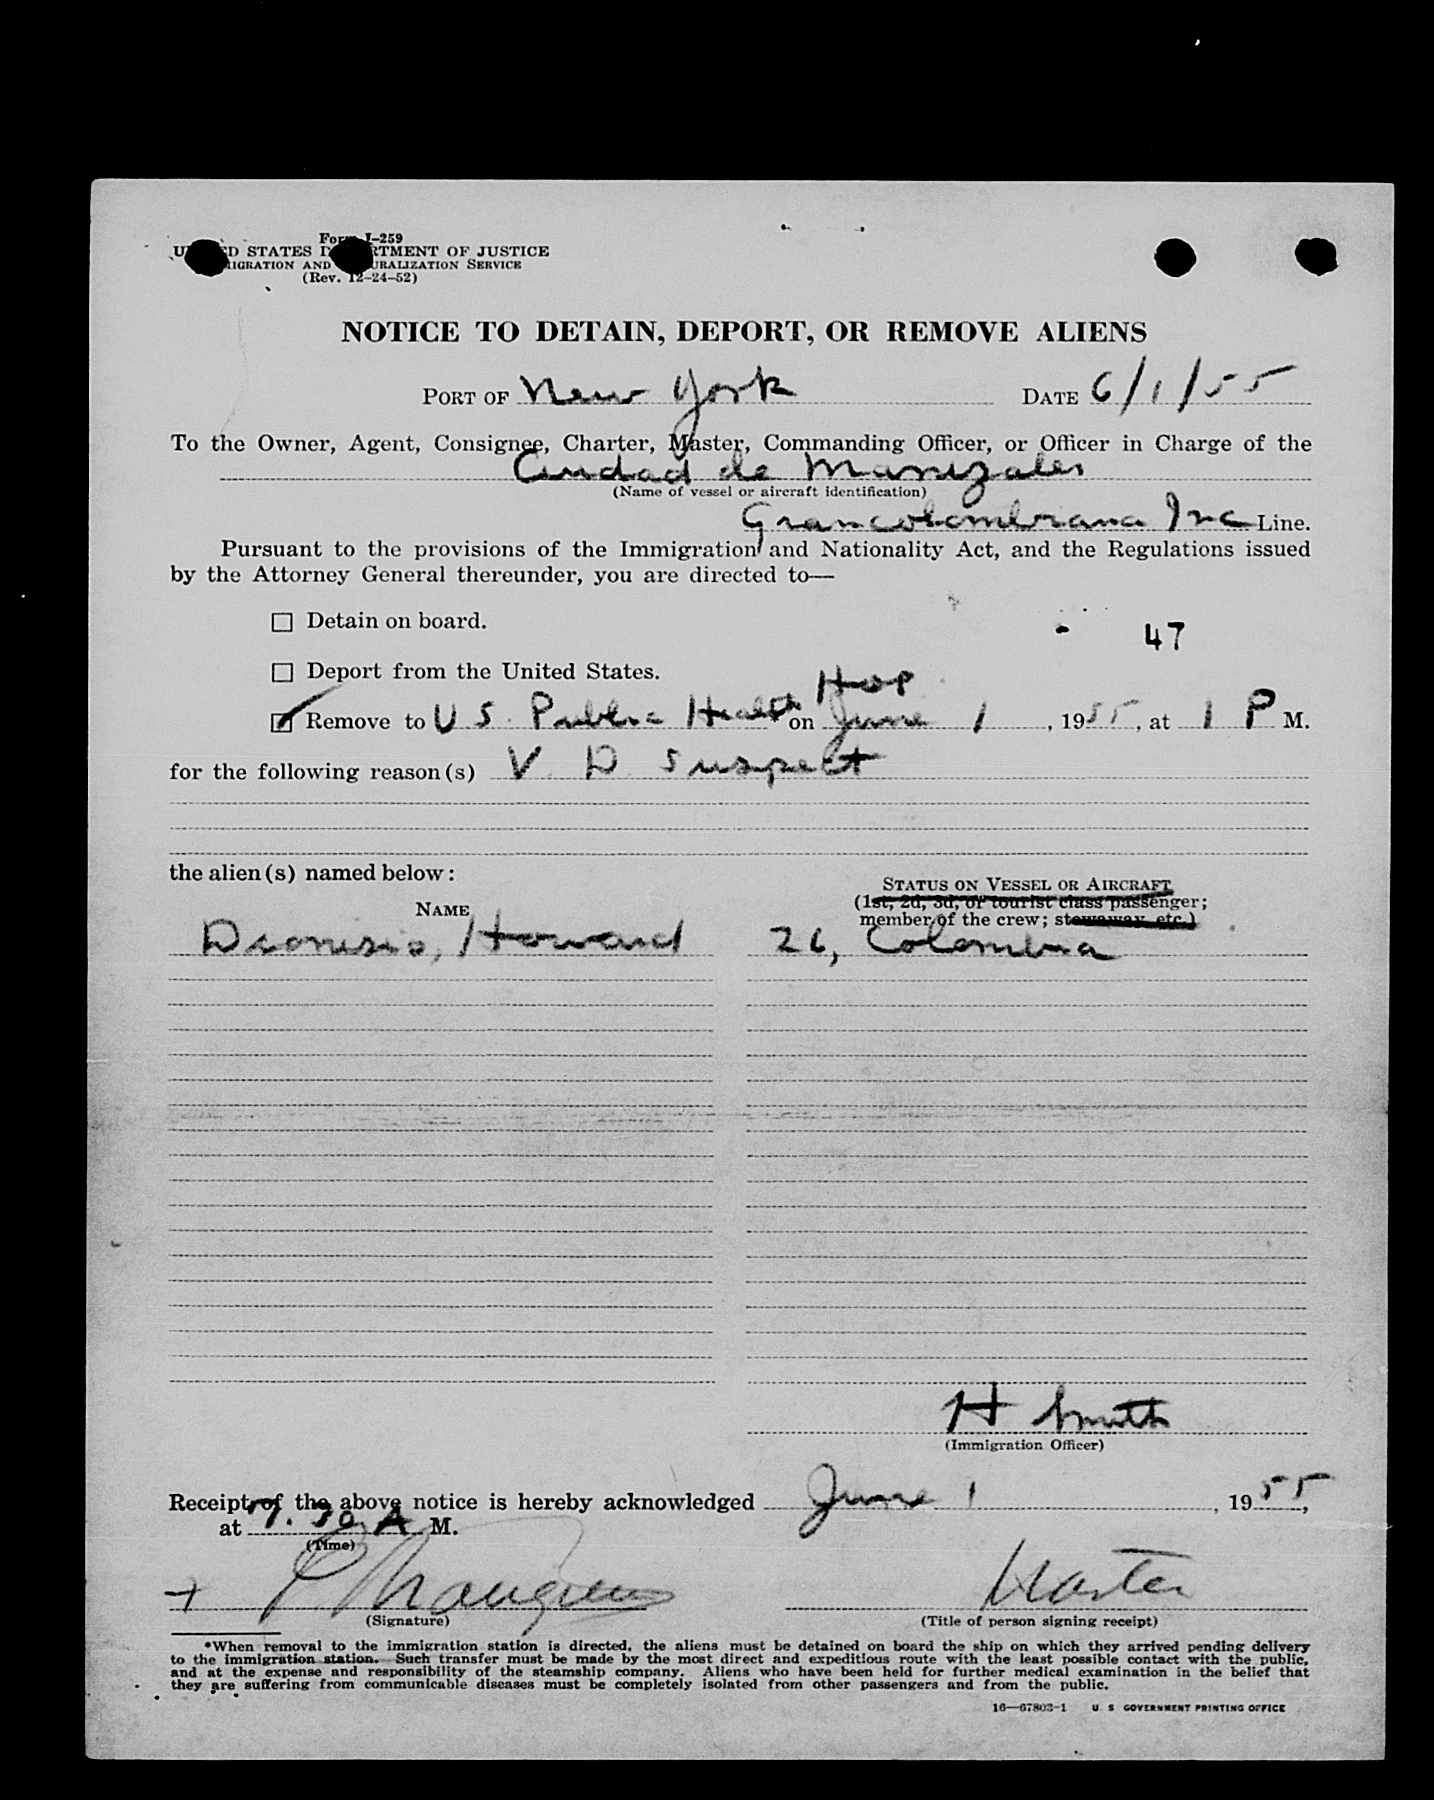 Form I-259
UNITED STATES DEPARTMENT OF JUSTICE
IMMIGRATION AND NATURALIZATION SERVICE
(Rev. 12-24-52)
NOTICE TO DETAIN, DEPORT, OR REMOVE ALIENS
PORT OF New York DATE 6/1/55
To the Owner, Agent, Consignee, Charter, Master, Commanding Officer, or Officer in Charge of the
Ciudad de Manizales
(Name of vessel or aircraft identification)
Grancolombiana Inc Line.
Pursuant to the provisions of the Immigration and Nationality Act, and the Regulations issued
by the Attorney General thereunder, you are directed to—
Detain on board.
47
Deport from the United States.
Hop
Remove to U S. Public Health on June 1, 1955, at 1 P M.
for the following reason(s) V. D. Suspect
the alien(s) named below:
STATUS ON VESSEL OR AIRCRAFT
(1st, 2d, 3d, or tourist class passenger;
NAME
member of the crew; stowaway, etc.)
Dionisio, Howard 26, Colombia
H Smith
(Immigration Officer)
Receipt of the above notice is hereby acknowledged June 1, 1955,
at 7.30 A M.
(Time)
Master
(Signature) (Title of person signing receipt)
*When removal to the immigration station is directed, the aliens must be detained on board the ship on which they arrived pending delivery
to the immigration station. Such transfer must be made by the most direct and expeditious route with the least possible contact with the public,
and at the expense and responsibility of the steamship company. Aliens who have been held for further medical examination in the belief that
they are suffering from communicable diseases must be completely isolated from other passengers and from the public.
16—67803-1 U. S. GOVERNMENT PRINTING OFFICE